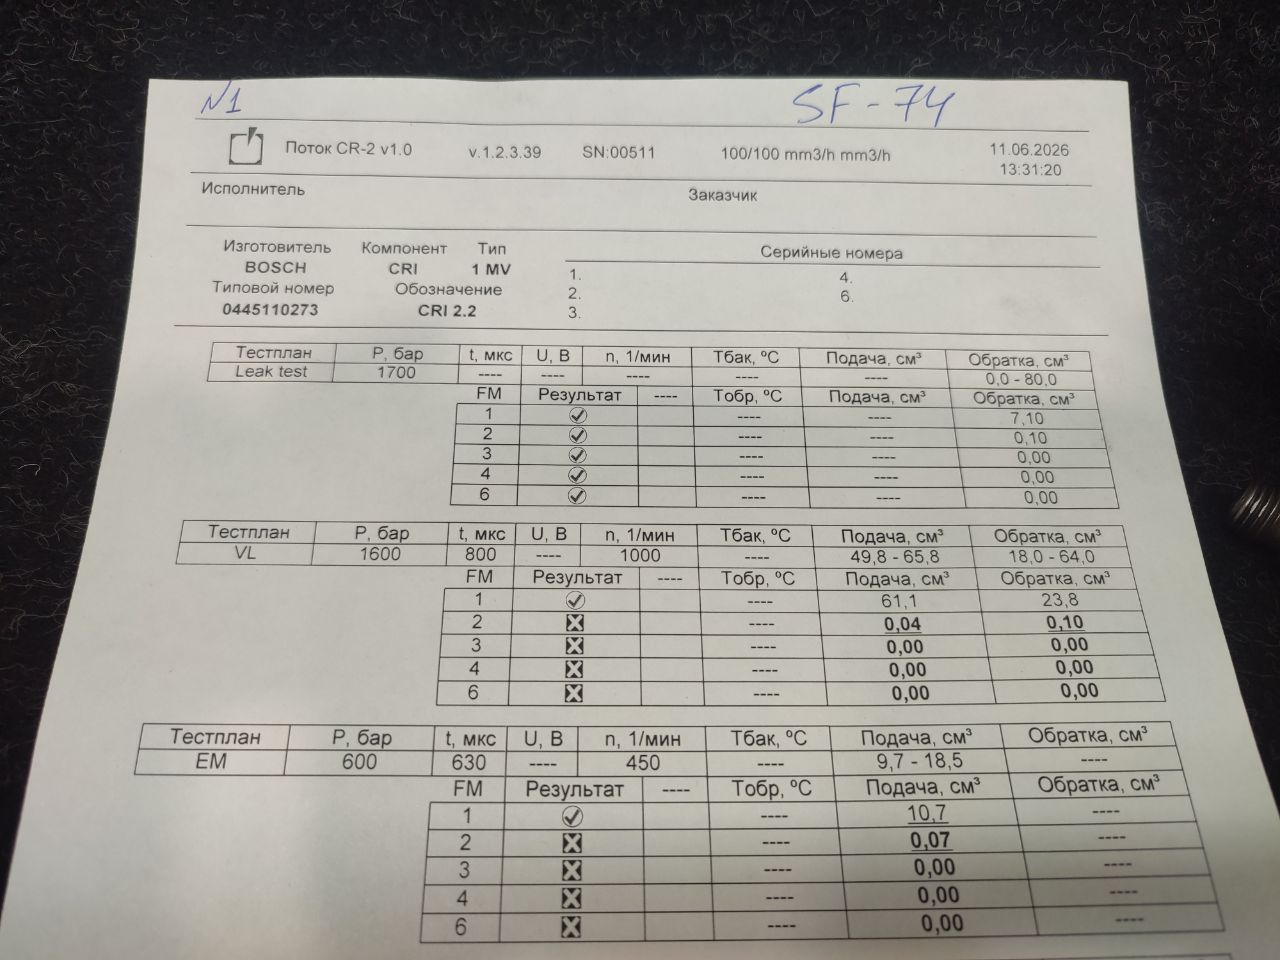 N1 SF-74
Поток CR-2 v1.0 v.1.2.3.39 SN:00511 100/100 mm3/h mm3/h 11.06.2026
13:31:20
Исполнитель Заказчик
Изготовитель Компонент Тип Серийные номера
BOSCH CRI 1 MV 1. 4.
Типовой номер Обозначение 2. 6.
0445110273 CRI 2.2 3.
Тестплан P, бар t, мкс U, В n, 1/мин Tбак, ºC Подача, см³ Обратка, см³
Leak test 1700 ---- ---- ---- ---- ---- 0,0 - 80,0
FM Результат ---- Tобр, ºC Подача, см³ Обратка, см³
1 ---- ---- 7,10
2 ---- ---- 0,10
3 ---- ---- 0,00
4 ---- ---- 0,00
6 ---- ---- 0,00
Тестплан P, бар t, мкс U, В n, 1/мин Tбак, ºC Подача, см³ Обратка, см³
VL 1600 800 ---- 1000 ---- 49,8 - 65,8 18,0 - 64,0
FM Результат ---- Tобр, ºC Подача, см³ Обратка, см³
1 ---- 61,1 23,8
2 ---- 0,04 0,10
3 ---- 0,00 0,00
4 ---- 0,00 0,00
6 ---- 0,00 0,00
Тестплан P, бар t, мкс U, В n, 1/мин Tбак, ºC Подача, см³ Обратка, см³
EM 600 630 ---- 450 ---- 9,7 - 18,5 ----
FM Результат ---- Tобр, ºC Подача, см³ Обратка, см³
1 ---- 10,7 ----
2 ---- 0,07 ----
3 ---- 0,00 ----
4 ---- 0,00 ----
6 ---- 0,00 ----